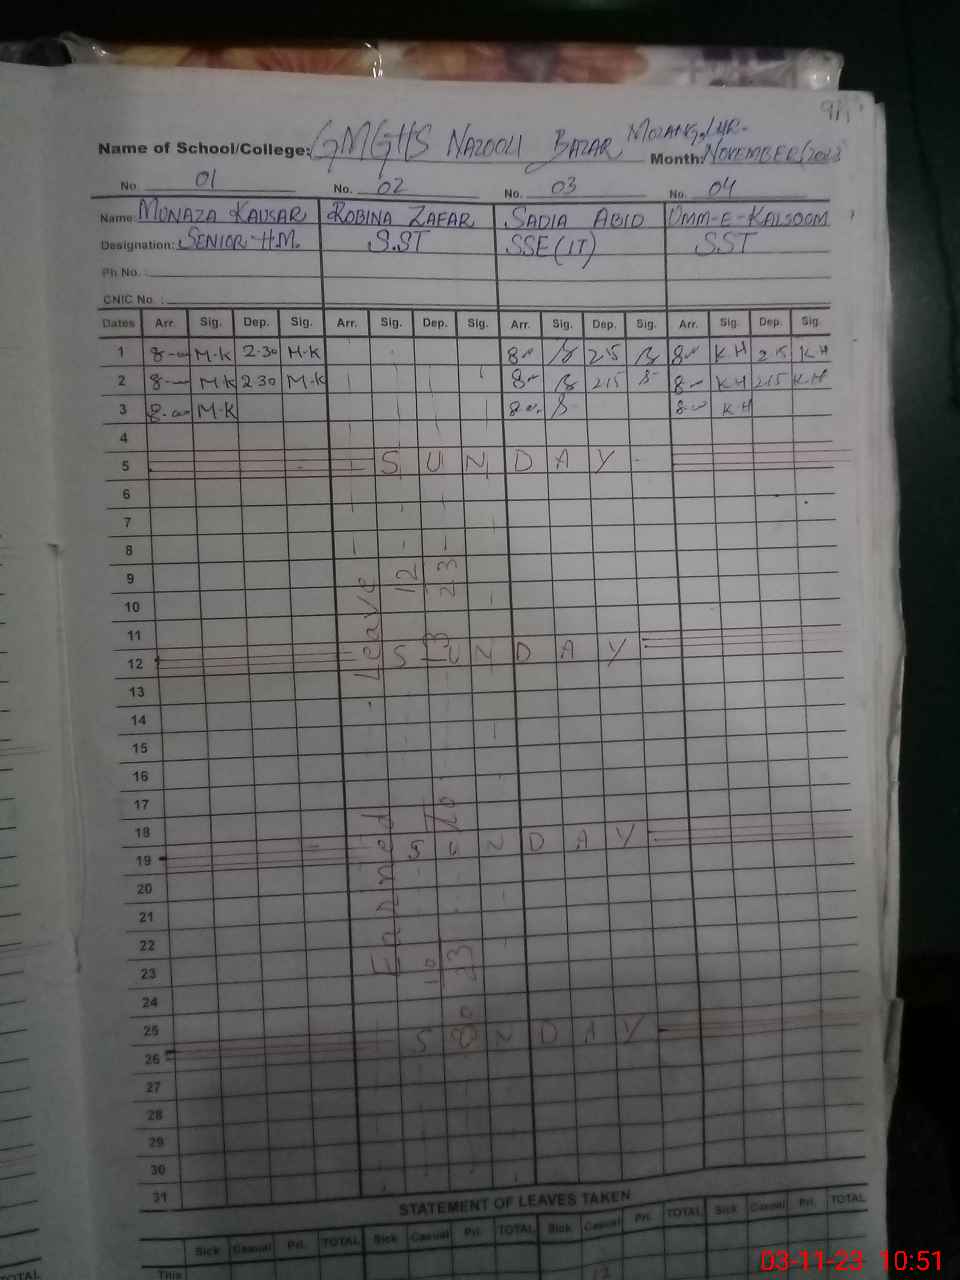 Name of School/College: GMGHS NAZOOLI BAZAR MOZANG, LHR.
Month: NOVEMBER/2023
No. 01 No. 02 No. 03 No. 04
Name: MONAZA KAUSAR ROBINA ZAFAR SADIA ABID UMM-E-KALSOOM
Designation: SENIOR H.M. S.ST SSE (IT) SST
Ph No.:
CNIC No. :
Dates Arr. Sig. Dep. Sig. Arr. Sig. Dep. Sig. Arr. Sig. Dep. Sig. Arr. Sig. Dep. Sig.
1 8-00 M-K 2-30 M-K 800 215 800 KH 215 KH
2 8-00 M-K 2-30 M-K 800 215 800 KH 215 K-H
3 8-00 M-K 800 800 KH
4
5 SUNDAY
6
7
8
9
10
11
12 SUNDAY
13
14
15
16
17
18
19 SUNDAY
20
21
22
23
24
25
26 SUNDAY
27
28
29
30
31
Earned Leave
10 23 To 12 23
STATEMENT OF LEAVES TAKEN
Sick Casual Pri. TOTAL Sick Casual Pri. TOTAL Sick Casual Pri. TOTAL Sick Casual Pri. TOTAL
This
TOTAL
03-11-23 10:51